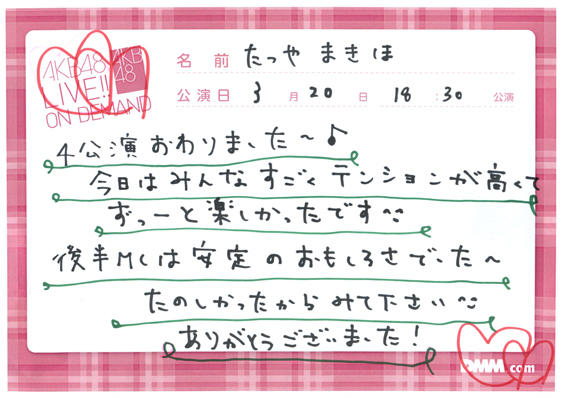 AKB48
LIVE!!
ON DEMAND
AKB
48
名前 たつや まきほ
公演日 3月20日 18:30公演
4公演おわりました〜♪
今日はみんなすごくテンションが高くて
ずっーと楽しかったです
後半MCは安定のおもしろさでした〜
たのしかったからみて下さい
ありがとうございました!
DMM.com